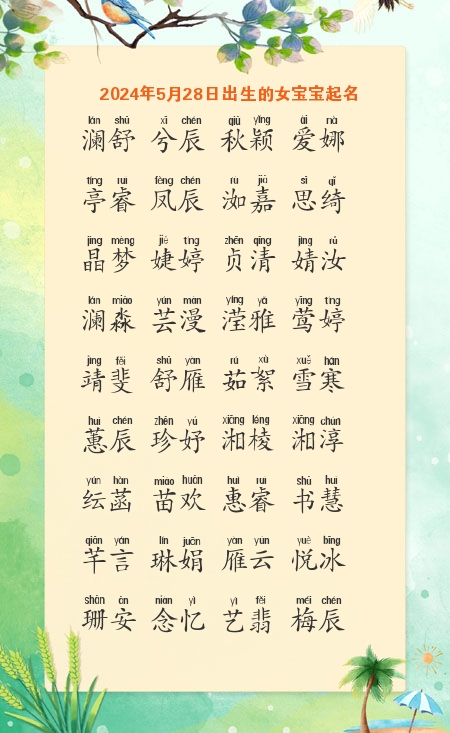 2024年5月28日出生的女宝宝起名
lán shū xī chén qiū yǐng ài nà
澜舒 兮辰 秋颖 爱娜
tíng ruì fèng chén rù jiā sī qǐ
亭睿 凤辰 洳嘉 思绮
jīng mèng jié tíng zhēn qīng jìng rǔ
晶梦 婕婷 贞清 婧汝
lán miǎo yún màn yíng yǎ yīng tíng
澜淼 芸漫 滢雅 莺婷
jìng fěi shū yàn rú xù xuě hán
靖斐 舒雁 茹絮 雪寒
huì chén zhēn yú xiāng léng xiāng chún
蕙辰 珍妤 湘棱 湘淳
yún hàn miáo huān huì ruì shū huì
纭菡 苗欢 惠睿 书慧
qiān yán lín juān yàn yún yuè bīng
芊言 琳娟 雁云 悦冰
shān ān niàn yì yì fěi méi chén
珊安 念忆 艺翡 梅辰